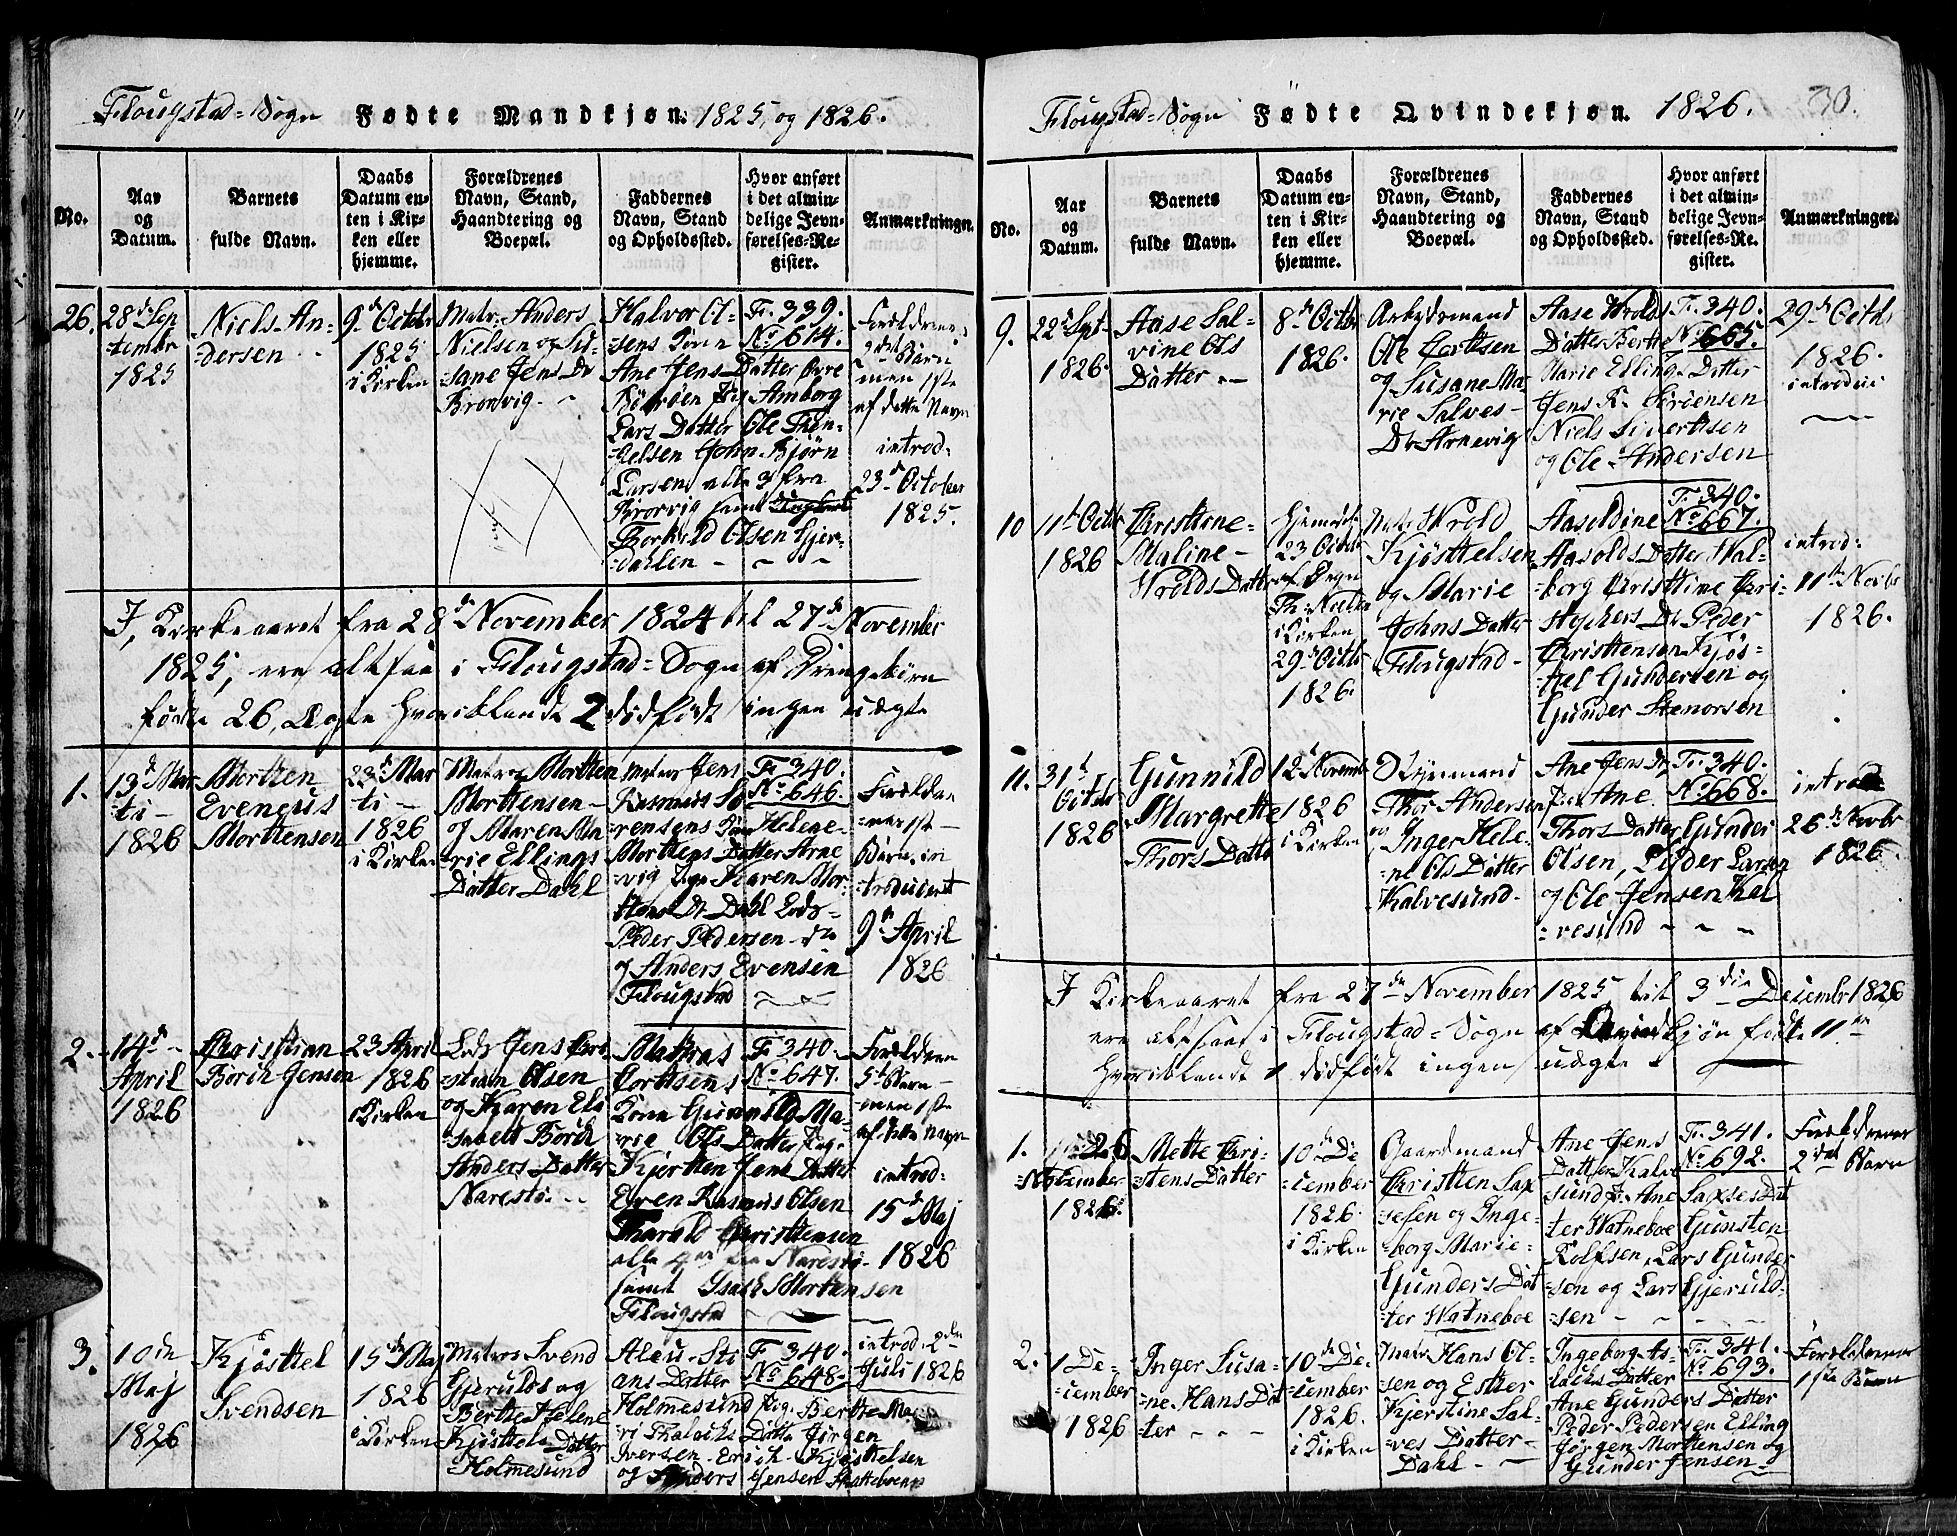 Flougstad-Sogn Fødte Mandkjøn: 1825, og 1826.
No.
Aar
og
Datum.
Barnets
fulde Navn.
Daabs
Datum en-
ten i Kir-
ken eller
hjemme.
Forældrenes
Navn, Stand,
Haandtering og
Boepæl.
Faddernes
Navn, Stand
og Opholdssted.
Hvor anført
i det almin-
delige Jevn-
førelses-Re-
gister.
Anmærkninger.
26.
28de Sep
tembr
1825
Niels An-
dersen
9de Octbr
1825
i Kirken
Matr: Anders
Nielsen og Su-
sane Jens Dr
Bronvig
Halvor Ol-
sens Kone
Ane Jens Datter
Amborg
Lars Datter Ole
John Bjørn
Larsen alle 3 fra
Torkild Olsen Gjer-
dahlen
Fr. 339.
No 614.
Forældrenes
2det Barn
men 1ste
af dette Navn
introd:
23de October
1825.
I, Kirkeaaret fra 28de November 1824 til 27de November
1825, ere altsaa i Flougstad-Sogn af Drengebørn
fødte 26, Ægte hvoriblandt 2 dødfødt ingen uægte
1.
13de Mar
ti
1826
Morthen
Evenius
Morthensen
23de Mar
ti
1826
i Kirken
Matros Morthen
Morthensen
og Maren Ma
rie Ellings
Datter Dahl
Matros Jens
Rasmus Sø
rensens Kone Helene
Morthens Datter Arne
vig Karen Mor-
thens Dr Dahl Lods
Peder Pedersen
og Anders Evensen
Flougstad
Fr. 340.
No 646.
Forældre
nes 1ste
Barn, in
troduceret
9de April
1826
2.
14de
April
1826
Christian
Borch Jensen
23 April
1826
i Kirken
Lods Jens Chri
stian Olsen
og Karen Eli
sabeth Borch
Anders Datter
Narestø
Mathias
Corthsens
Kone Gunnild Ma-
rie Ols Datter
Kjersten Jens Datter
Even Rasmus Olsen
Tharald Christensen
alle fra Narestø
samt Isach Morthensen
Flougstad
Fr. 340.
No 647.
Forældrenes
5te Barn
men 1ste
af dette Navn
introd:
15de Maj
1826
3.
10de
Maj
1826
Kjøsthel
Svendsen
15de Maj
1826
i Kirken
Matros Svend
Gjerulds og
Berthe Helene
Kjøsthels Datter
Holmesund
Datter
Holmesund Berthe Ma
Datter Jørgen
Iversen Erich Kjøsthelsen
og Anders Jensen
F. 340.
No 648.
introd. 2den
Juli 1826
Flougstad-Sogn Fødte Qvindekjøn. 1826. 30.
No.
Aar
og
Datum.
Barnets
fulde Navn.
Daabs
Datum en-
ten i Kir-
ken eller
hjemme.
Forældrenes
Navn, Stand,
Haandtering og
Boepæl.
Faddernes
Navn, Stand
og Opholdssted.
Hvor anført
i det almin-
delige Jevn-
førelses-Re-
gister.
Anmærkninger.
9.
22de Spt
1826.
Aase Sal-
vine Ols
Datter
8de Octbr
1826.
Arbejdsmand
Ole Corthsen
og Susane Ma-
rie Salves
Dr Arnevig
Aase Wrolds
Datter Berthe
Marie Ellings Datter
Jens R. Sørensen
Niels Siverthsen
og Ole Andersen
Fr. 340.
No 665.
29de Octbr
1826.
introduc
10
11te Octbr
1826
Christine
Maline
Wrolds Datter
Hjemmedøbt
23 Octobr
i Kirken
29de Octbr
1826.
Matr Wrold
Kjøsthelsen
og Marie
Johns Datter
Flougstad
Aasoldine
Aasolds Datter Wal-
borg Christine Chri-
stophers Dr Peder
Christensen Kjøs-
thel Gundersen og
Gunder Stenorsen
Fr. 340.
No 667.
introd:
11te Novbr
1826.
11.
31te
Octobr
1826
Gunnild
Margrethe
Thors Dattr
12 Novembr
1826
i Kirken
Thor Andersen
og Inger Hele-
ne Ols Datter
Kalvesund
Ane Jens Dr
Ane
Thors Datter Gunder
Olsen, Peder Larsen
og Ole Jensen Kal
vesund
Fr. 340.
No 668.
introd
26de Novbr
1826.
I Kirkeaaret fra 27de November 1825 til 3die December 1826
ere altsaa i Flougstad-Sogn af Qvindekjøn fødte 11
hvoriblandt 1 dødfødt ingen uægte
1.
26
November
1826
Mette Chri-
stens Datter
10de De
cember
1826.
i Kirken
Gaardmand
Christen Sax
sesen og Inge-
borg Marie
Gunders Dat
ter Watneboe
Ane Jens
Datter Kalve
sund Ane Saxses Dat
ter Watneboe Gunsten
Rolfsen, Lars Gunder
sen og Lars Gjeruld-
sen
Fr. 341.
No 692.
Forældrenes
2det Barn
2.
1 De-
cember
1826
Inger Susa-
ne Hans Dat
ter
10de De-
cember
1826.
i Kirken
Matr. Hans Ol-
sen og Esther
Kjerstine Sal-
ves Datter
Dahl
Ingeborg As-
lachs Datter
Ane Gunders Datter
Peder Pedersen Elling
Jørgen Morthensen og
Gunder Jensen
Fr. 341.
No 693.
Forældrenes
1ste Barn